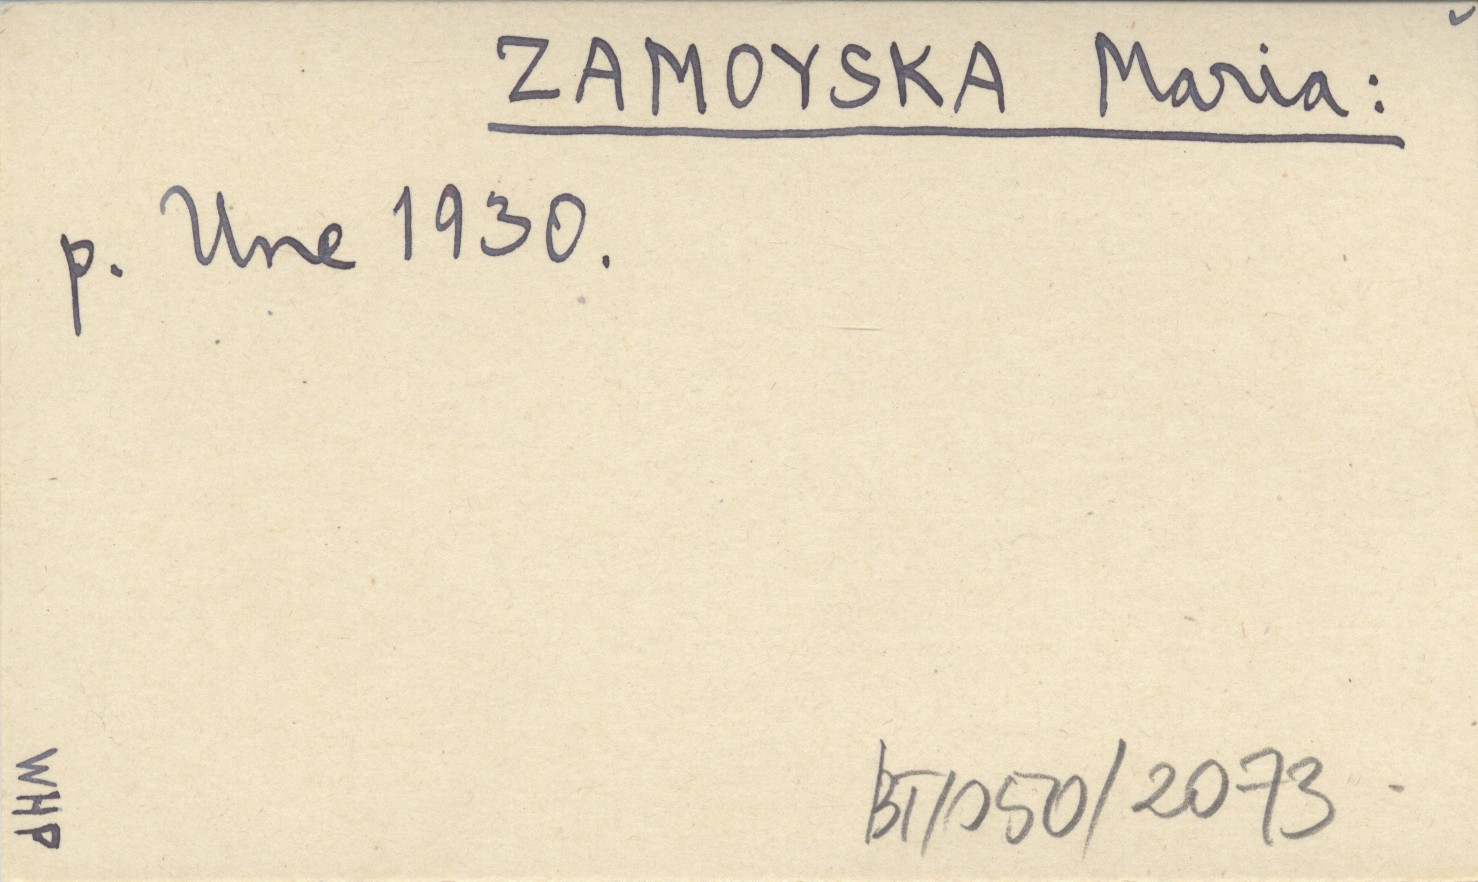 ZAMOYSKA Maria:
p. Une 1930.
WHP
BT/050/2073